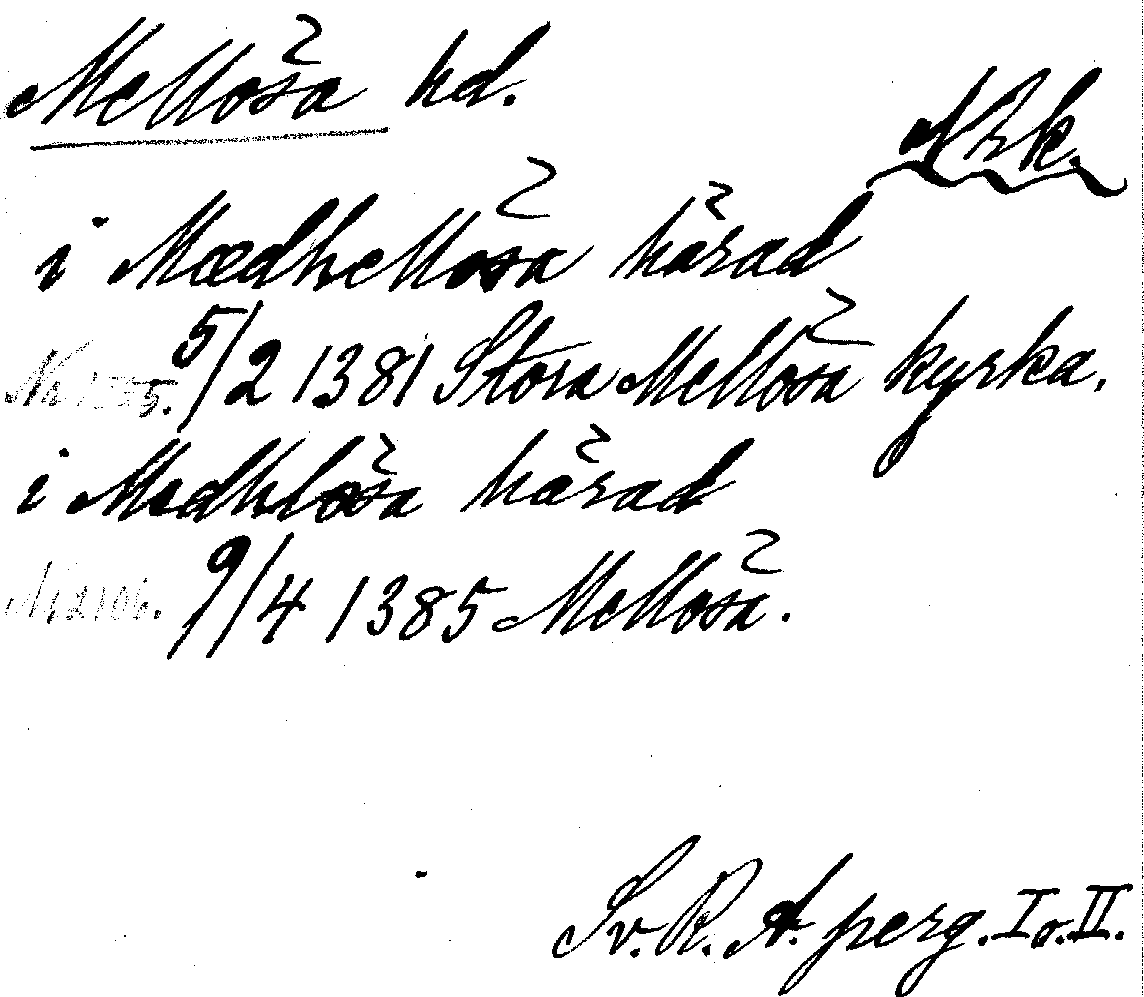 Mellösa hd.
Nrk.
i Mædhellösa härad
5/2 1381 Stora Mellösa kyrka.
i Mædhlösa härad
Nr 2106. 9/4 1385 Mellösa.
Sv. R. A. perg. I o. II.